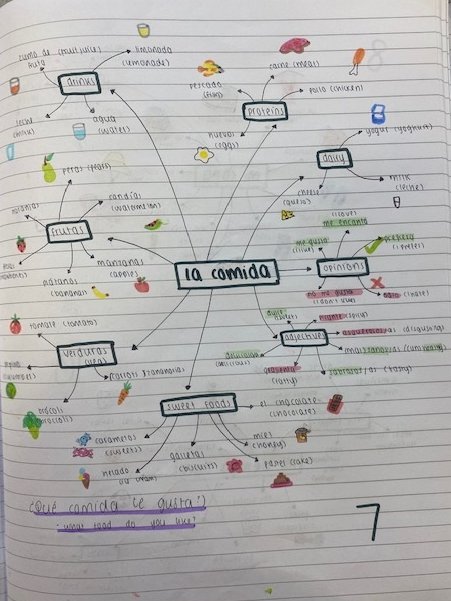 zumo de (fruit juice)
fruta
limonada
(lemonade)
drinks
leche
agua
(water)
pescado
(fish)
carne (meat)
pollo (chicken)
proteins
huevos
(eggs)
yogur (yoghurt)
dairy
cheese
(queso)
milk
(leche)
peras (pears)
sandías
(watermelon)
frutas
manzanas
(apple)
(bananas)
la comida
me encanta
(I love)
me gusta
(I like)
prefiero
(I prefer)
opinions
no me gusta
(I don't like)
odio (I hate)
tomate (tomato)
verduras
(veg)
brócoli
(broccoli)
dulce
(sweet)
picante (spicy)
adjective
asqueroso/as (disgusting)
delicioso
(delicious)
mas sano/as (healthy)
grasiento
(fatty)
sabroso/as (tasty)
sweet foods
el chocolate
(chocolate)
caramelos
(sweets)
helado
(ice cream)
galletas
(biscuits)
miel
(honey)
pastel (cake)
¿Qué comida te gusta?
what food do you like?
7